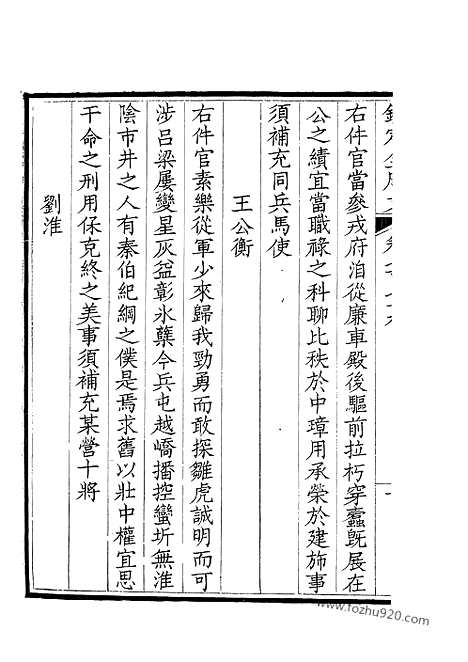 右件官當參戎府洎從廉車殿後驅前拉朽穿蠹既展在
公之績宜當職祿之科聊比秩於中璋用承榮於建斾事
須補充同兵馬使
王公衡
右件官素樂從軍少來歸我勁勇而敢探雛虎誠明而可
涉呂梁屢變星灰益彰氷蘗今兵屯越嶠播控蠻圻無淮
陰市井之人有秦伯紀綱之僕是焉求舊以壯中權宜思
干命之刑用保克終之美事須補充某營十將
劉淮
www.fozhu920.com